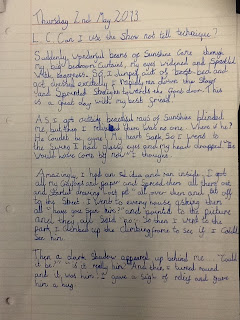 Thursday 2nd May 2013
L.C. Can I use the Show not tell technique?
Suddenly, wonderful beams of Sunshine came through
my bedroom curtains, my eyes widened and sparkled
with happiness. So I Jumped out of bed and
got dressed excitedly. I rapidly ran down the Stairs
and Sprinted towards the front door. This
is a great day with my best friend.
As I got outside beautiful rays of Sunshine blinded
me, but then I no one. Where is he?
He couldn't be away! My heart sank. So I went to
the Swing I had glassy eyes and my head dropped. "He
would have come by now" I thought.
Amazingly, I had an idea and ran inside. I got
all my and paper and Spread them all out
and started drawing all over them and set off
to the Street. I went to every house asking them
all "have you seen him?" and pointed to the picture
and they all Said no. So then I went to the
park, I climbed up the climbing frame to see if I could
see him.
Then a dark Shadow appeared up behind me... "Could
it be?" "Is it really him?" And then I turned round
and it was him. I gave a sigh of relief and gave
him a hug